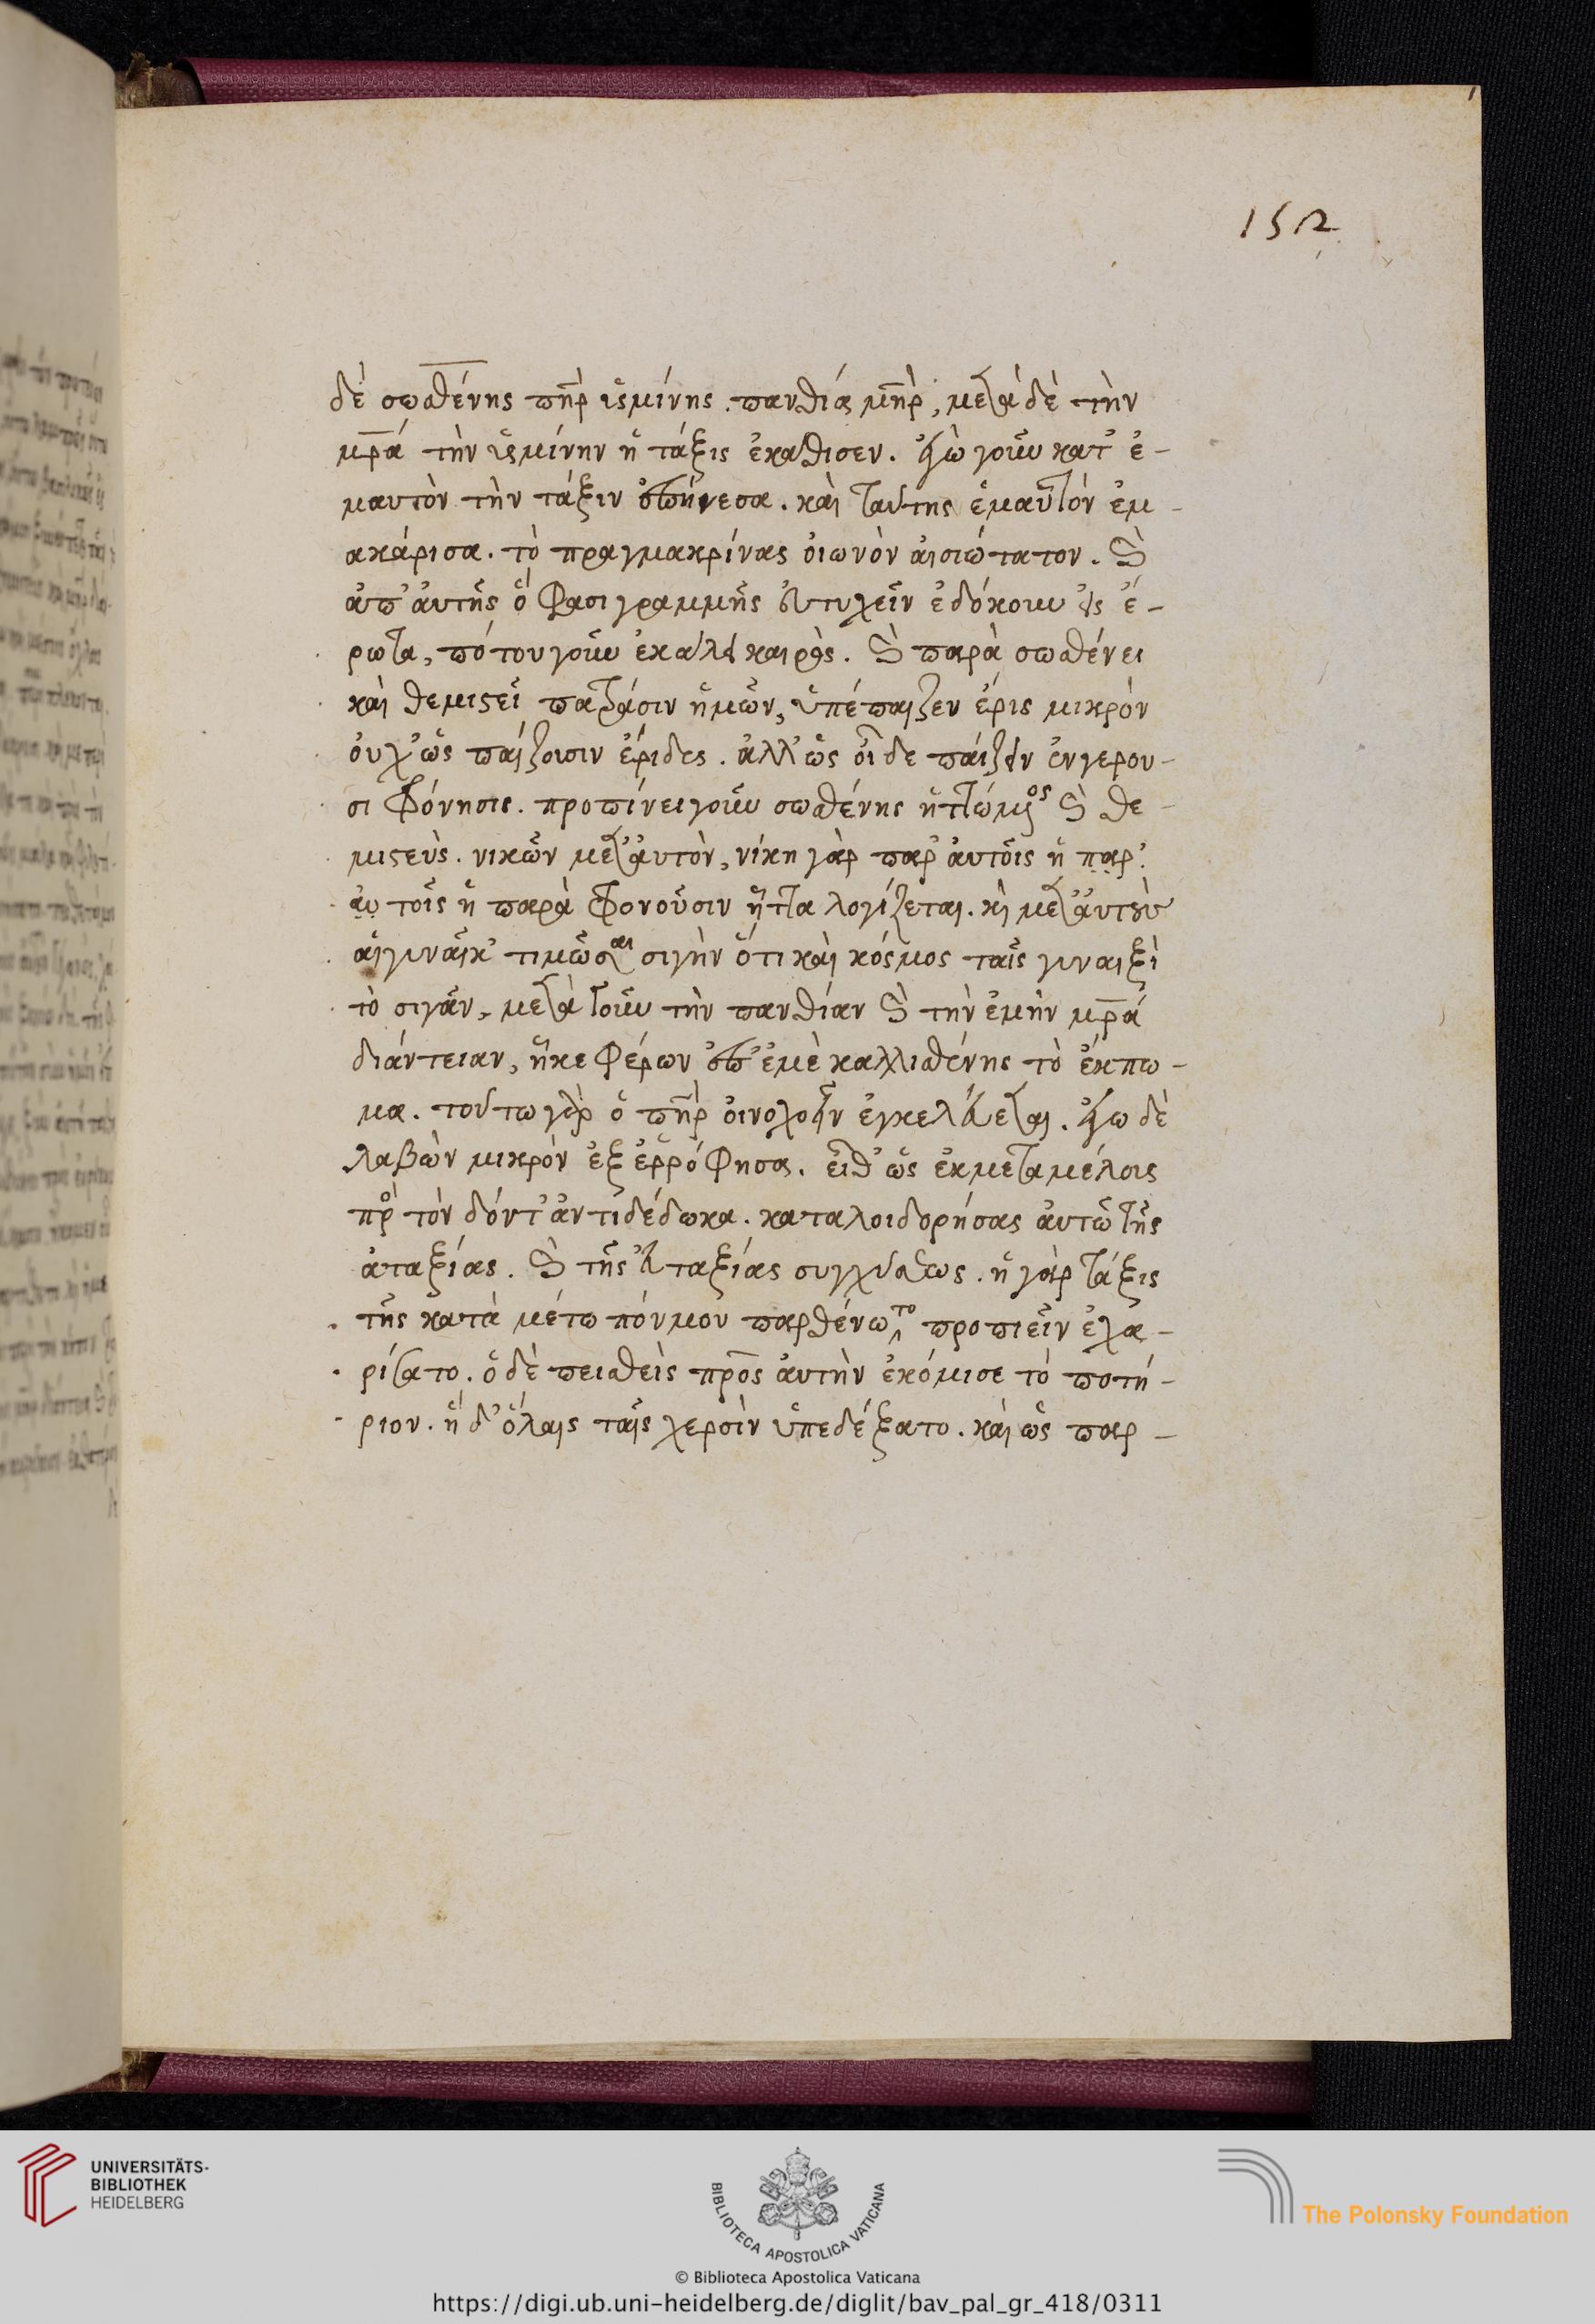 152
δὲ σωσθένης πη̅ρ ὑσμίνης. πανθίας μη̅ρ, μετὰ δὲ τὴν
μρ̅ά τὴν ὑσμίνην ἡ τάξις ἐκάθισεν. ἐγὼ γοῦν κατ' ἐ-
μαυτὸν τὴν τάξιν ἐπήνεσα. καὶ ταύτης ἐμαυτὸν ἐμ-
ακάρισα. τὸ πραγμακρίνας οἰωνὸν αἰσιώτατον. καὶ
ἀπ' ἀυτῆς ὅ φασι γραμμῆς ἐυτυχεῖν ἐδόκουν εἰς ἔ-
ρωτα, πότου γοῦν ἐκάλει καιρὸς. καὶ παρὰ σωσθένει
καὶ θεμιστεῖ πατράσιν ἡμῶν, ὑπέπαιζεν ἔρις μικρὸν
ὀυχ' ὡς παίζουσιν ἔριδες. ἀλλ' ὡς οἶδε παίζειν ἐν γερου-
σι φρόνησις. προπίνει γοῦν σωσθένης ἡττώμενος καὶ θε-
μιστεὺς. νικῶν μετ' ἀυτὸν, νίκη γὰρ παρ' ἀυτοῖς ἡ παρ'
ἀυτοῖς ἡ παρὰ φρονοῦσιν ἧττα λογίζεται. καὶ μετ' ἀυτοὺς
αἱ γυναῖκ' τιμῶσαι σιγὴν ὅτι καὶ κόσμος ταῖς γυναιξὶ
τὸ σιγᾶν, μετὰ γοῦν τὴν πανθίαν καὶ τὴν ἐμὴν μρ̅ά
διάντειαν, ἧκε φέρων ἐπ' ἐμὲ καλλισθένης τὸ ἔκπω-
μα. τούτω γὰρ ὁ πη̅ρ οἰνοχοεῖν ἐγκελεύεται. ἐγὼ δὲ
λαβὼν μικρὸν ἐξερρόφησα. εἶθ' ὡς ἐκ μεταμέλοις
πρὸ τὸν δόντ' ἀντιδέδωκα. καταλοιδορήσας ἀυτῶ τῆς
ἀταξίας. καὶ τῆς ἐυταξίας συγχύσεως. ἡ γὰρ τάξις
τῆς κατὰ μέτωπόν μου παρθένω τὸ προπιεῖν ἐχα-
ρίσατο. ὁ δὲ πεισθεὶς πρὸς ἀυτὴν ἐκόμισε τὸ ποτή-
ριον. ἡ δ' ὅλαις ταῖς χερσὶν ὑπεδέξατο. καὶ ὡς παρ-
UNIVERSITÄTS-
BIBLIOTHEK
HEIDELBERG
BIBLIOTECA APOSTOLICA VATICANA
The Polonsky Foundation
© Biblioteca Apostolica Vaticana
https://digi.ub.uni-heidelberg.de/diglit/bav_pal_gr_418/0311